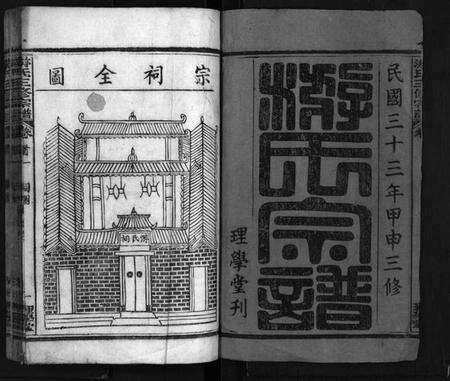 民國三十三年甲申三修
游氏宗譜
理學堂刊
宗祠全圖
游氏祠